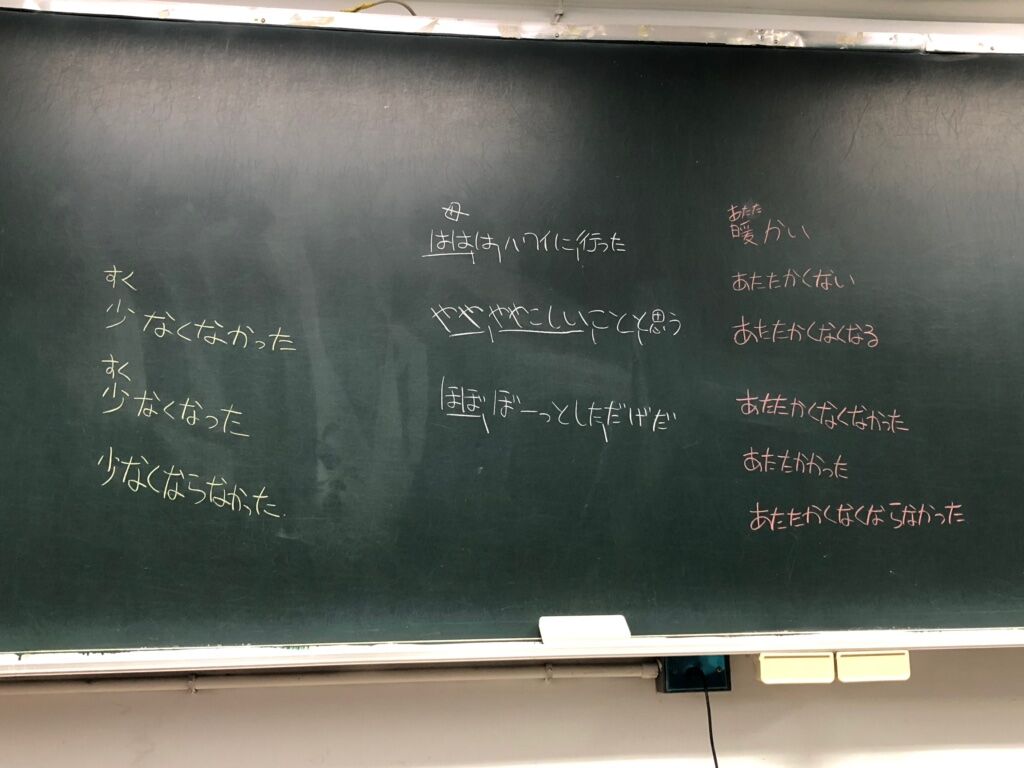 すく
少なくなかった
すく
少なくなった
少なくならなかった.
母
はははハワイに行った
ややややこしいことと思う
ほぼぼーっとしただけだ
あたた
暖かい
あたたかくない
あたたかくなくなる
あたたかくなくなかった
あたたかかった
あたたかくなくならなかった